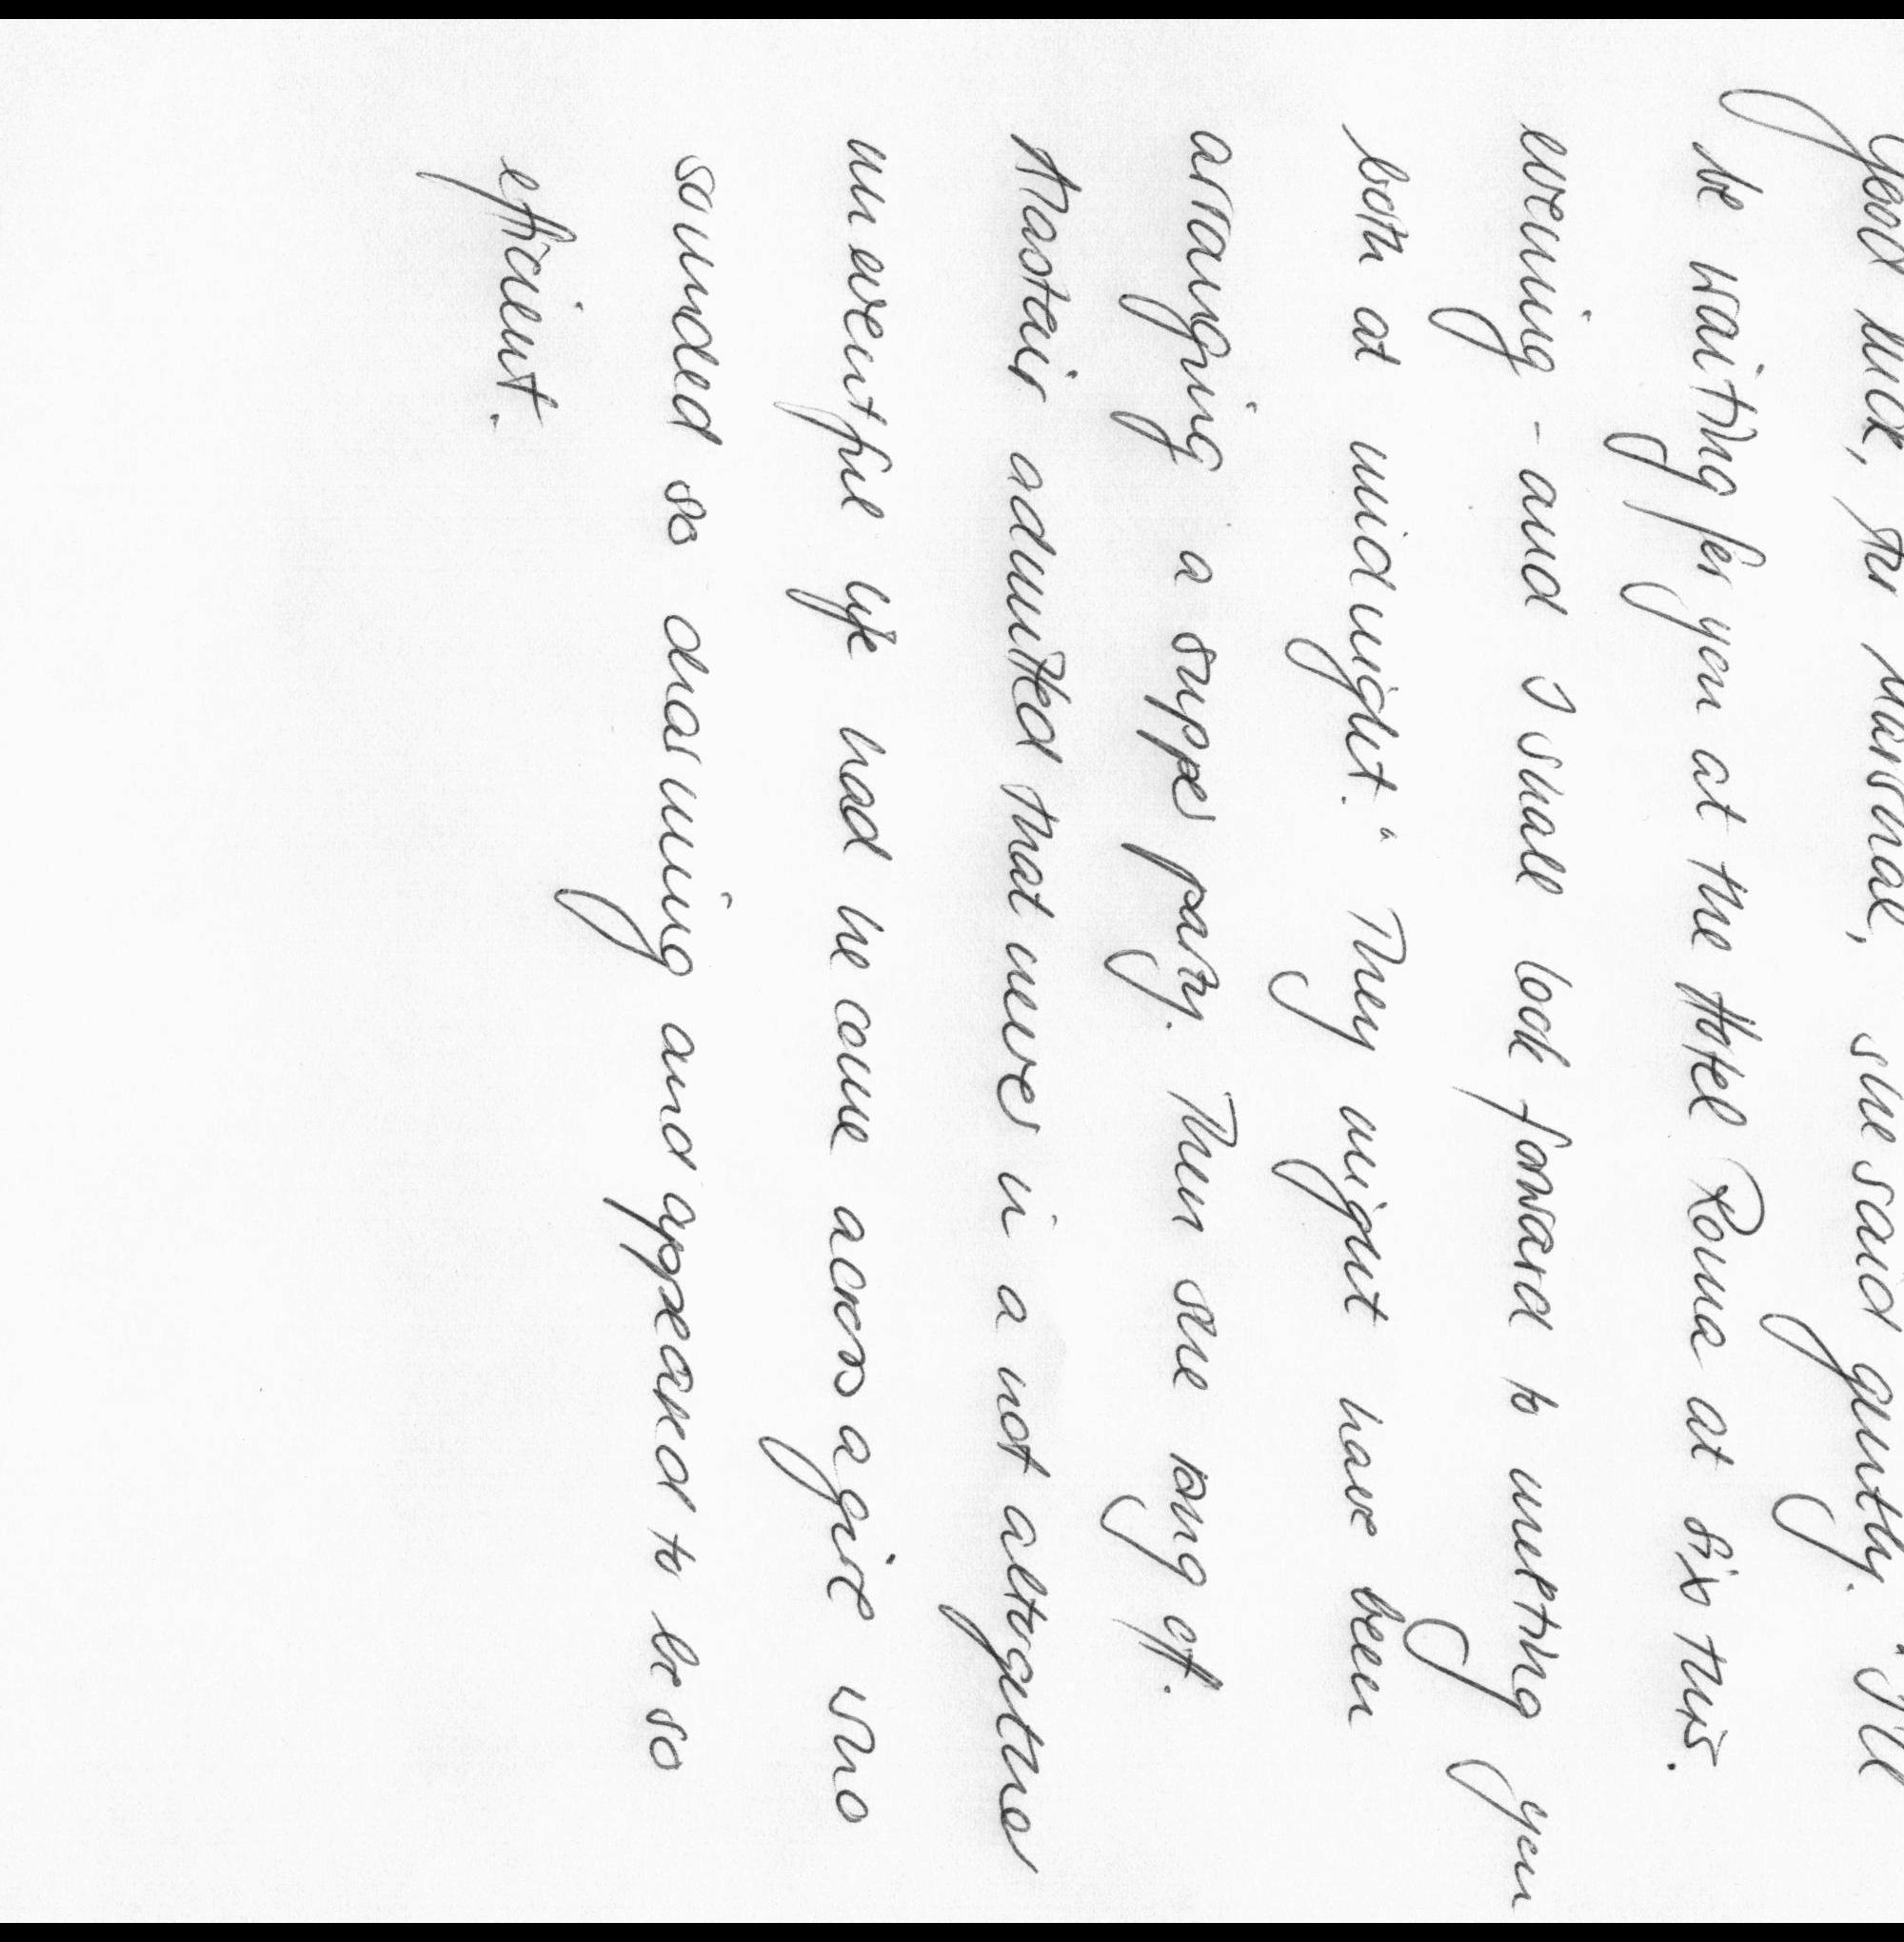 good luck, Air Marshal," she said gently. "I'll
be waiting for you at the Hotel Roma at six this.
evening - and I shall look forward to meeting you
both at midnight." They might have been
arranging a supper party. Then she rang off.
Alastair admitted that never in a not altogether
uneventful life had he come across a girl who
sounded so charming and appeared to be so
efficient.